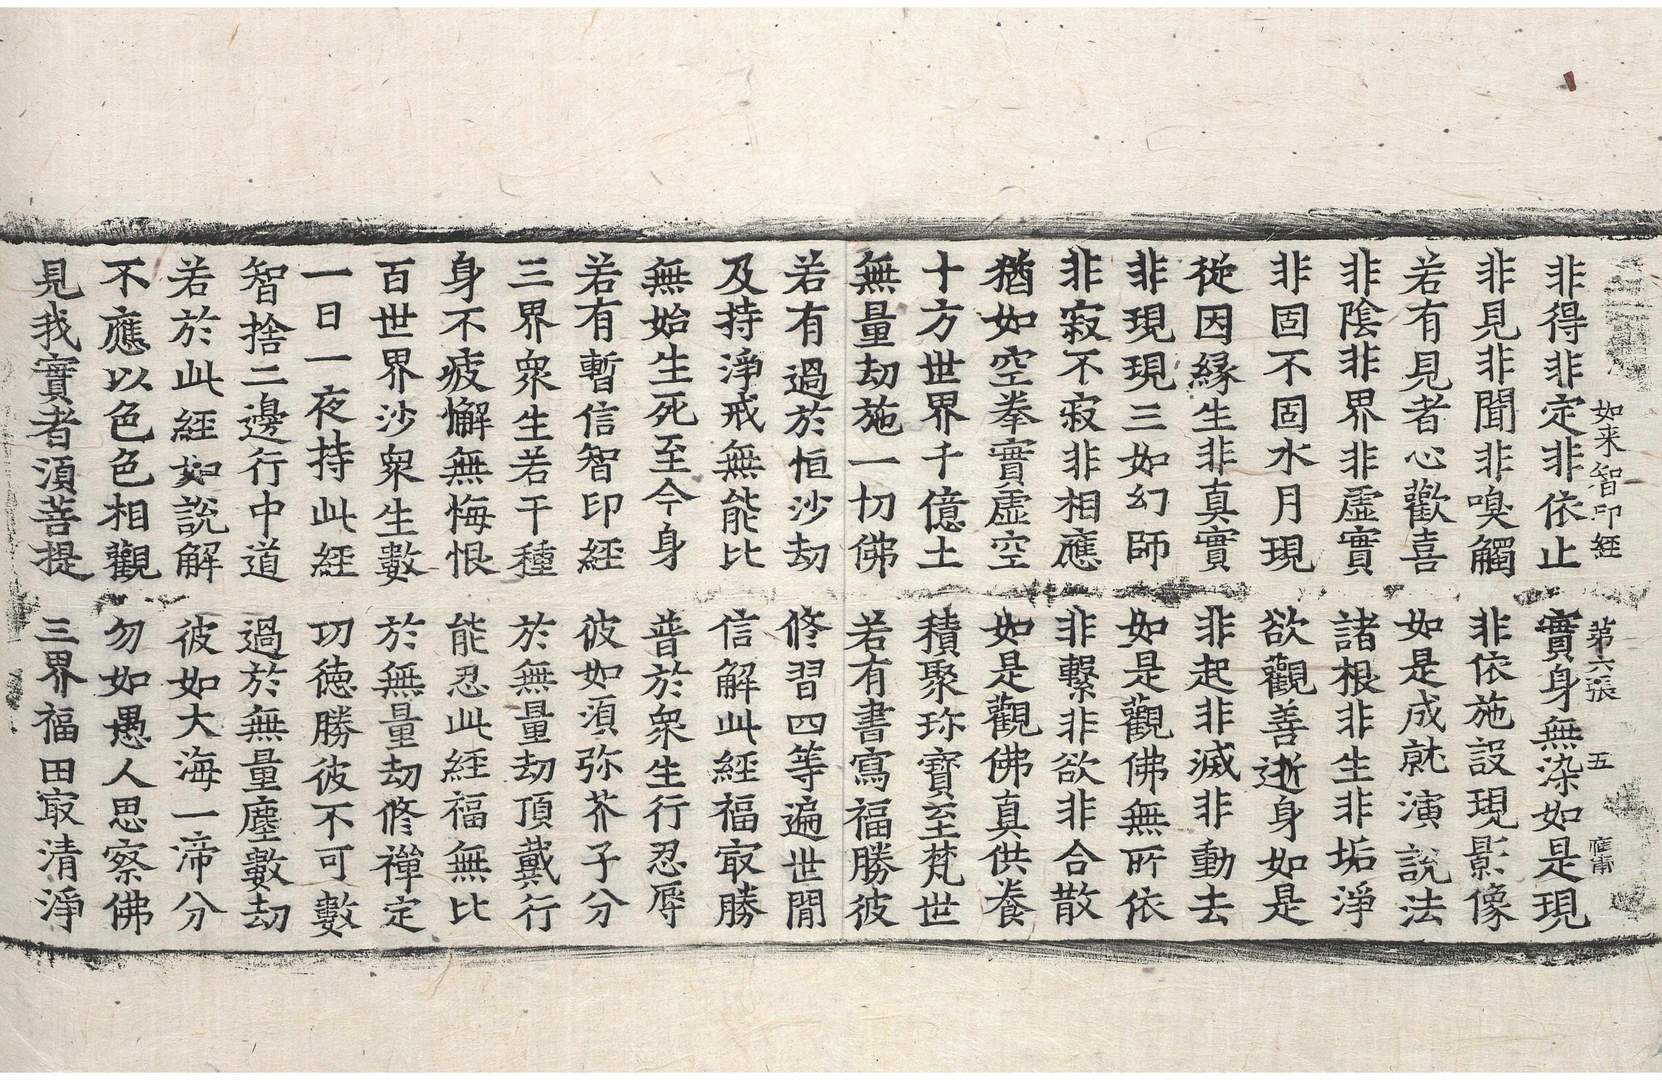 如来智印經 第六張 五
非得非定非依止 實身無染如是現
非見非聞非嗅觸 非依施設現影像
若有見者心歡喜 如是成就演說法
非陰非界非虛實 諸根非生非垢淨
非固不固水月現 欲觀善逝身如是
從因緣生非真實 非起非滅非動去
非現現三如幻師 如是觀佛無所依
非寂不寂非相應 非繫非欲非合散
猶如空拳實虛空 如是觀佛真供養
十方世界千億土 積聚珎寶至梵世
無量劫施一切佛 若有書寫福勝彼
若有過於恒沙劫 修習四等遍世間
及持淨戒無能比 信解此經福㝡勝
無始生死至今身 普於衆生行忍辱
若有暫信智印經 彼如湏弥芥子分
三界衆生若干種 於無量劫頂戴行
身不疲懈無悔恨 能忍此經福無比
百世界沙衆生數 於無量劫修禪定
一日一夜持此經 功德勝彼不可數
智捨二邊行中道 過於無量塵數劫
若於此經如說解 彼如大海一渧分
不應以色色相觀 勿如愚人思察佛
見我實者湏菩提 三界福田㝡清淨